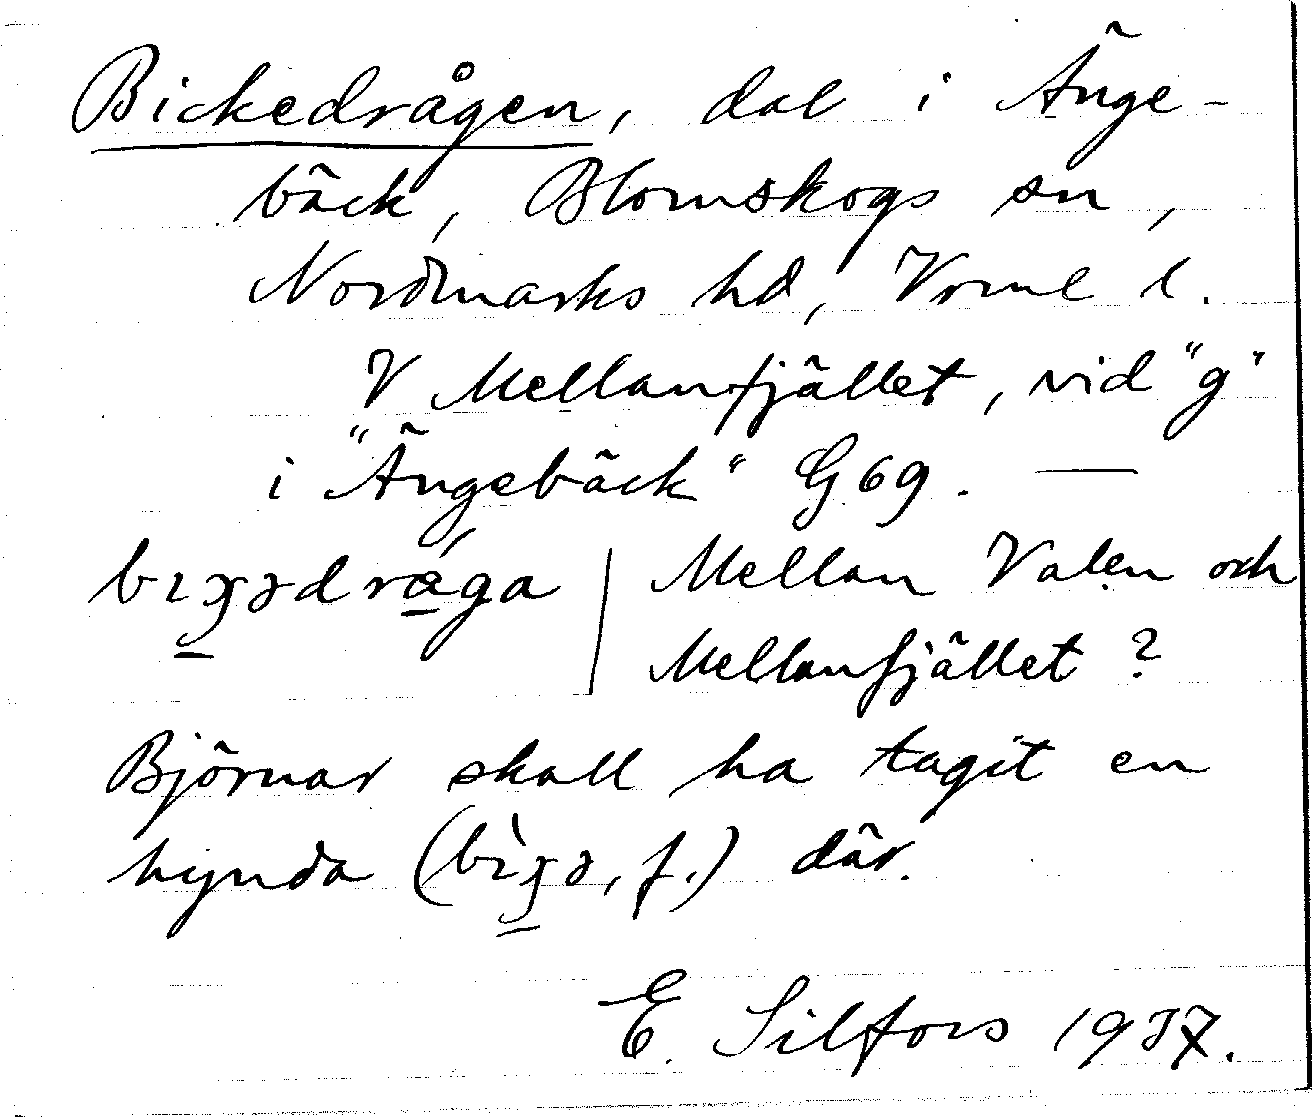 Bickedrågen, dal i Änge-
bäck, Blomskogs sn,
Nordmarks hd, Vrml l.
V Mellanfjället, vid "g"
i "Ängebäck" G69. —
Mellan Valen och
Mellanfjället?
Björnar skall ha tagit en
hynda (, f.) där.
E. Silfors 1937.